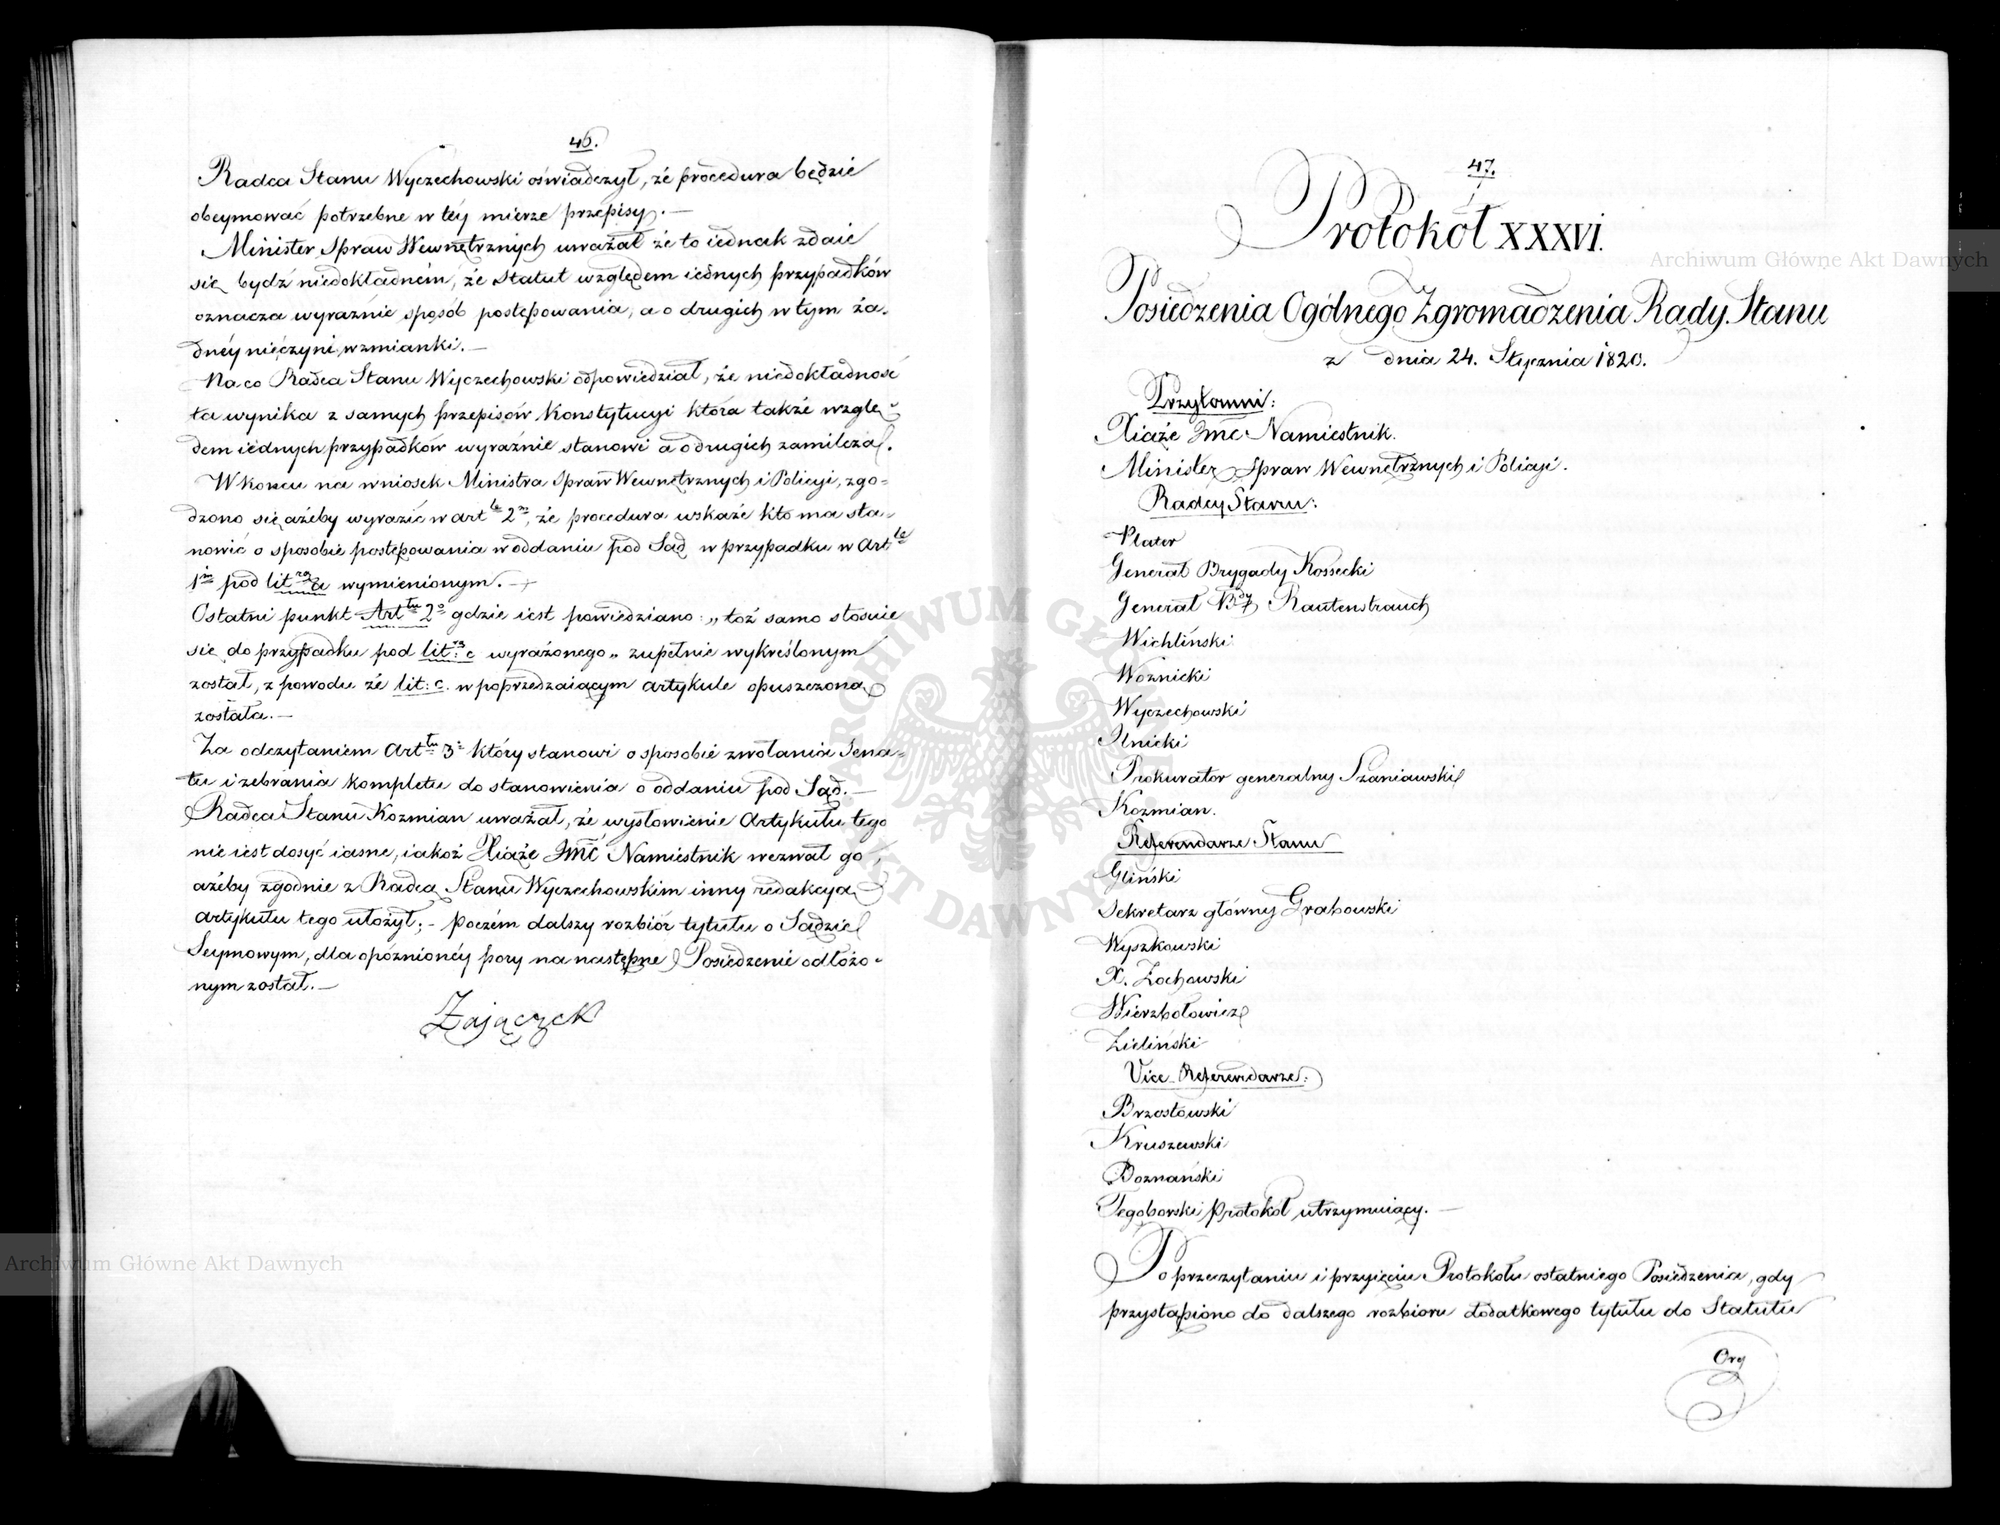 46.
Radca Stanu Wyczechowski oświadczył, że procedura będzie
obeymować potrzebne w téy mierze przepisy. —
Minister Spraw Wewnętrznych uważał że to iednak zdaie
się bydź niedokładném, że Statut względem iednych przypadków
oznacza wyraźnie sposób postępowania, a o drugich w tym ża-
dnéy nieczyni wzmianki. —
Na co Radca Stanu Wyczechowski odpowiedział, że niedokładność
ta wynika z samych przepisów Konstytucyi która także wzglę-
dem iednych przypadków wyraźnie stanowi a o drugich zamilcza.
W końcu na wniosek Ministra Spraw Wewnętrznych i Policyi, zgo-
dzono się ażeby wyrazić w art^le 2^m, że procedura wskaże kto ma sta-
nowić o sposobie postępowania w oddaniu pod Sąd w przypadku w Art^le
1^m pod lit^rą wymienionym. —
Ostatni punkt Art^łu 2° gdzie iest powiedziano: „toż samo stosuie
się do przypadku pod lit^rą c wyrażonego„ zupełnie wykreślonym
został, z powodu że lit: c. w poprzedzaiącym artykule opuszczona
została. —
Za odczytaniem Art^łu 3° który stanowi o sposobie zwołania Sena-
tu i zebrania kompletu do stanowienia o oddaniu pod Sąd. —
Radca Stanu Kozmian uważał, że wysłowienie Artykułu tego
nie iest dosyć iasne, iakoż Xiąże Jmć Namiestnik wezwał go,
ażeby zgodnie z Radcą Stanu Wyczechowskim inny redakcyą
artykułu tego ułożył; — poczém dalszy rozbiór tytułu o Sądzie
Seymowym, dla opóznionéy pory na następne Posiedzenie odłożo-
nym został. —
Zajączek
47.
Protokół XXXVI.
Posiedzenia Ogólnego Zgromadzenia Rady Stanu
z dnia 24. Stycznia 1820.
Przytomni:
Xiąże Jmć Namiestnik.
Minister Spraw Wewnętrznych i Policyi.
Radcy Stanu:
Plater
Generał Brygady Kossecki
Generał B^dy Rautenstrauch
Wichliński
Woznicki
Wyczechowski
Ilnicki
Prokurator generalny Szaniawski
Kozmian.
Referendarze Stanu
Gliński
Sekretarz główny Grabowski
Wyszkowski
X. Zochowski
Wierzbołowicz
Zieliński
Vice-Referendarze:
Brzostowski
Kruszewski
Poznański
Tęgoborski Protokół utrzymuiący. —
Po przeczytaniu i przyięciu Protokołu ostatniego Posiedzenia, gdy
przystąpiono do dalszego rozbioru dodatkowego tytułu do Statutu
Org
Archiwum Główne Akt Dawnych
Archiwum Główne Akt Dawnych
ARCHIWUM GŁÓWNE AKT DAWNYCH